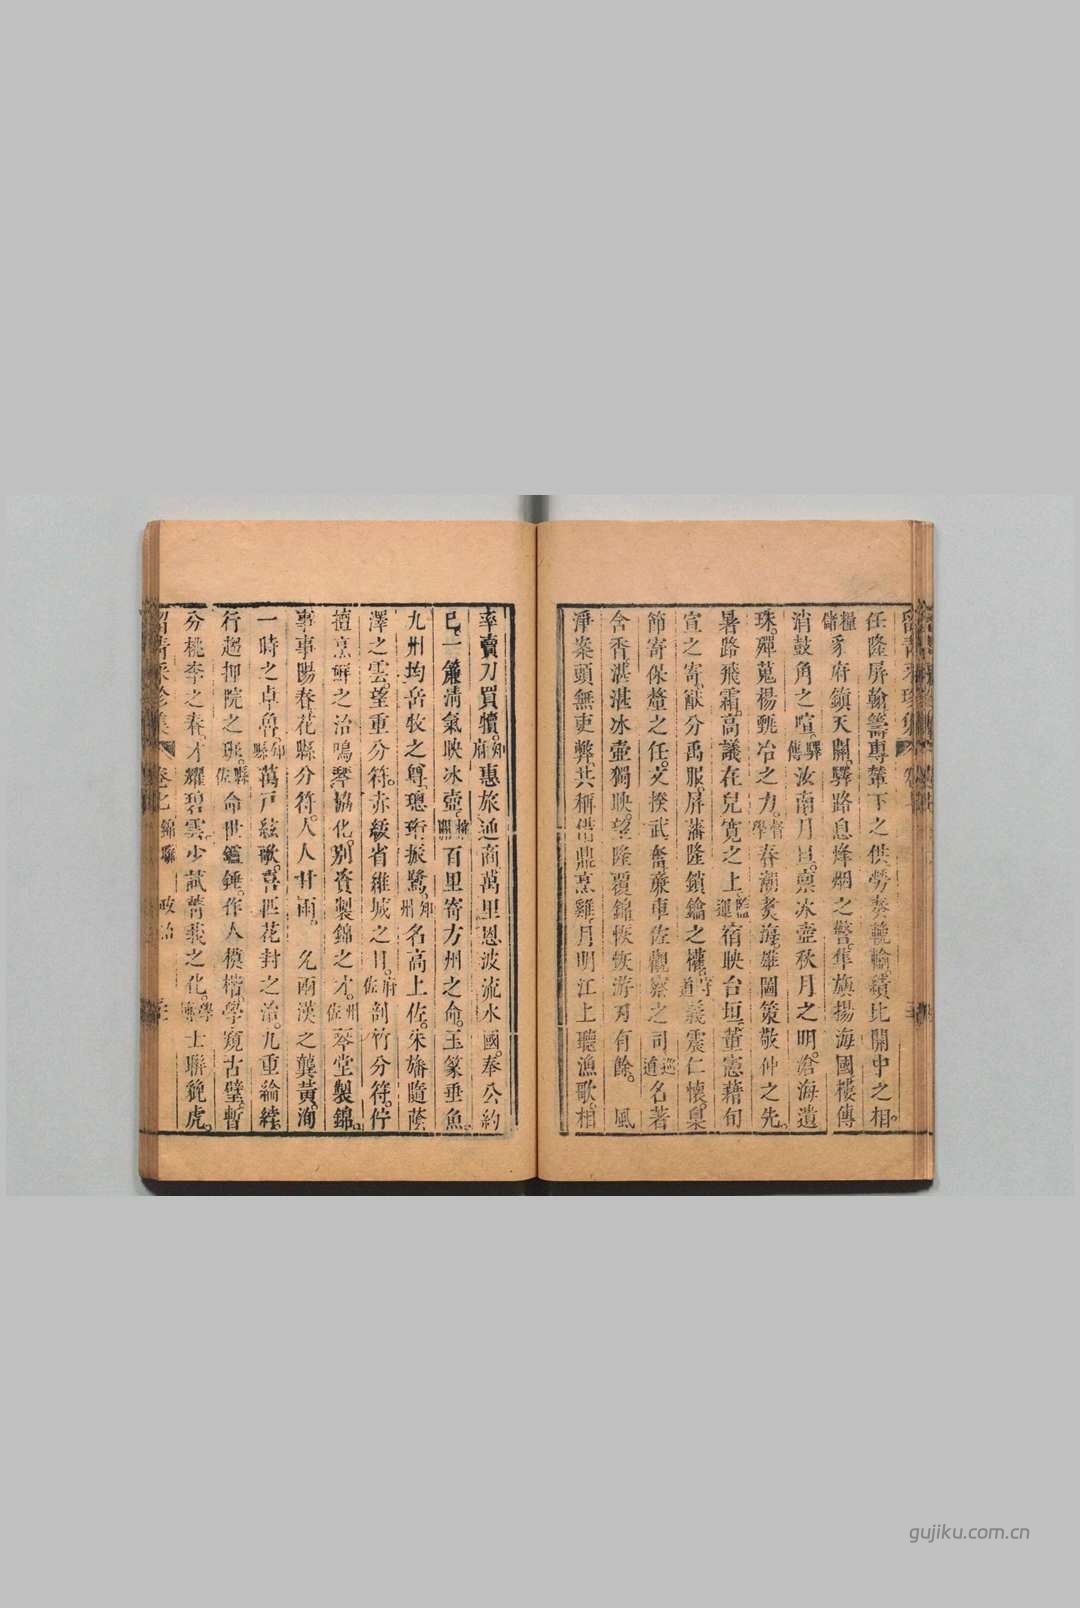 任隆屏翰籌專輦下之供勞奏輓輸績比關中之相。
糧儲豸府鎮天關驛路息烽烟之警隼旟揚海國樓傳
消鼓角之喧。驛傳汝南月旦。禀冰壺秋月之明。滄海遺
珠。殫蒐楊銚冶之力。督學春潮煑海。雄圖策敬仲之先。
暑路飛霜。高議在兒寬之上。監運宿映台垣。董憲藉旬
宣之寄猷分禹服。屏藩隆鎖鑰之權。守道義震仁懷。臬
節寄保釐之任。文揆武奮蕓車佐觀察之司巡道名著
含香湛湛冰壺獨映。望隆覆錦恢恢游刃有餘。風
淨案頭無吏弊。共稱借鼎烹雞。月明江上聽漁歌。相
率賣刀買犢。知府惠旅通商萬里恩波流水國。奉公約
已。一簾清氣映冰壺。百里寄方州之命。玉篆垂魚。
九州均岳牧之尊。璁珩振鷺。知州名高上佐。朱旛隨蔭
澤之雲。望重分符。赤紱省維城之日。府佐剖竹分符。佇
擅烹鮮之治鳴琴協化。別資製錦之才。州佐琴堂製錦。
事事陽春。花縣分符。人人甘雨。允兩漢之龔黃。洵
一時之卓魯。知縣萬戶絃歌。喜匹花封之治。九重綸綍。
行超抑院之班。縣佐命世鑑錘。作人模楷。學窺古璧。暫
分桃李之春。才耀碧雲。少試菁莪之化。學博士聯貔虎。
卷之 錦聯 政治
gujiku.com.cn